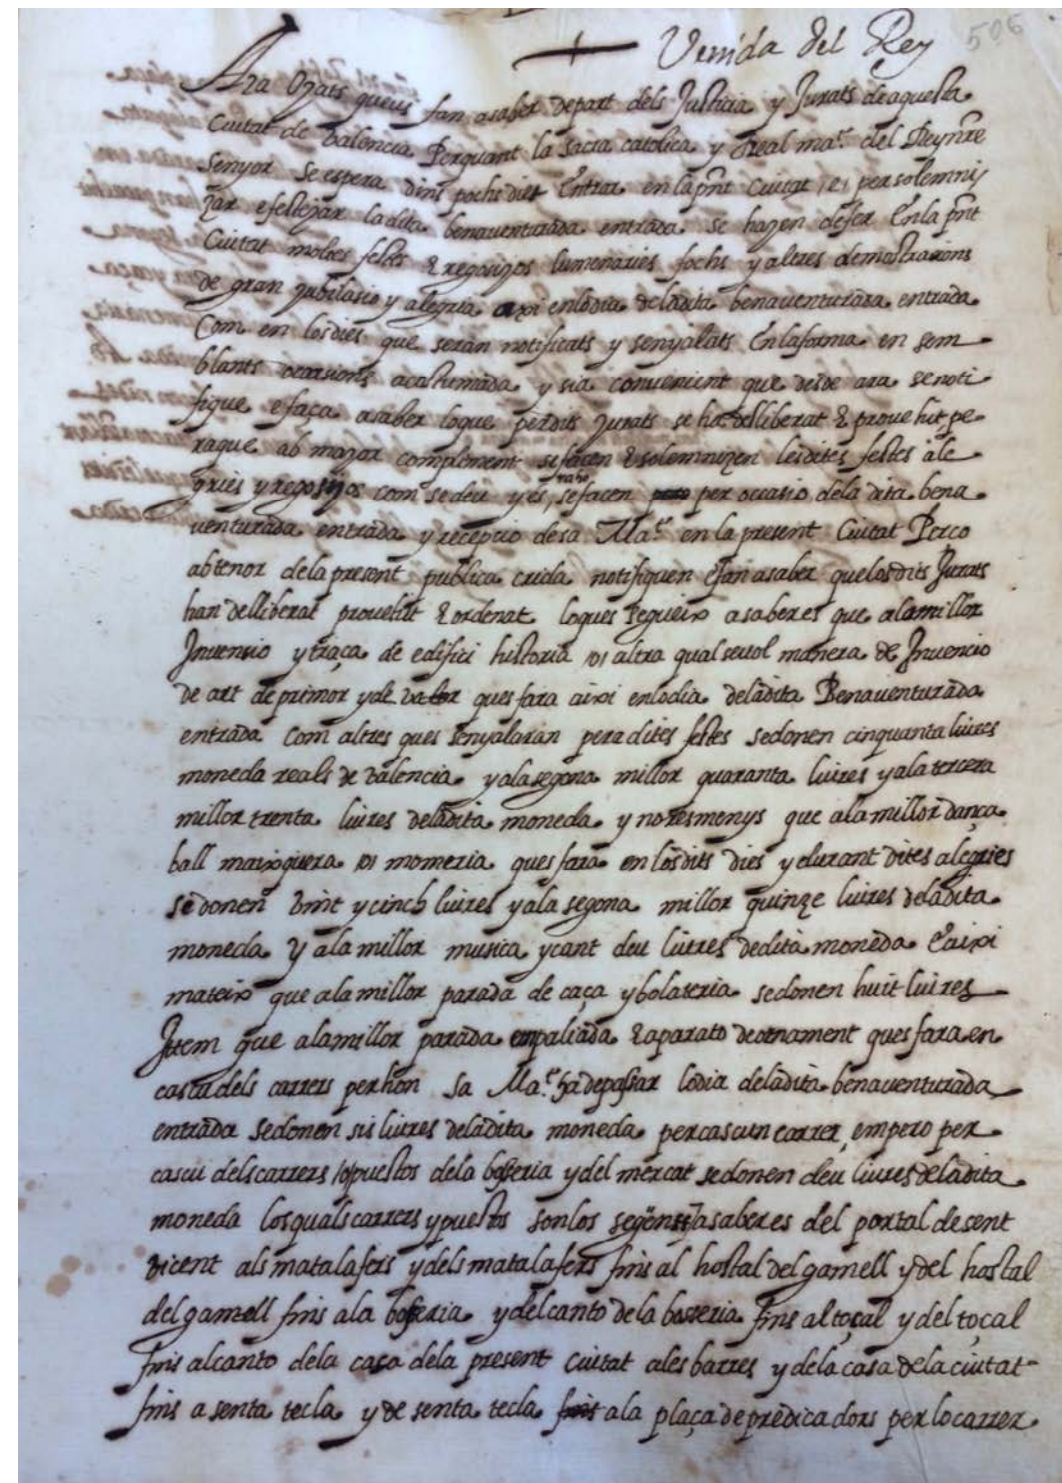 Venida del Rey 506
Ara Ojats queus fan asaber de part dels Justicia y Jurats de aquesta
Ciutat de Valencia Perquant la Sacra catolica y Real ma.t del Rey nre
Senyor se espera dins pochs dies Entrar en la pnt Ciutat /e/ per solemni
zar e festejar la dita benaventurada entrada se hagen de fer En la pnt
Ciutat moltes festes & regosijos lumenaries fochs y altres demostracions
de gran jubilasio y alegria axi en lo dia de la dita benaventurara entrada
Com en los dies que seran notificats y senyalats En la forma en sem
blants occasions acostumada y sia convenient que desde ara se noti
fique e faça asaber lo que per dits Jurats se ha delliberat & provehit pe
raque ab major compliment se facen & solemnizen les dites festes ale
gries y regosijos com se deu y es raho se facen per occasio de la dita bena
venturada entrada y recepcio de sa Ma.t en la present Ciutat Perco
ab tenor de la present publica crida notifiquen e fan asaber que los dits Jurats
han delliberat provehit & ordenat lo ques segueix asaber es que a la millor
Invensio y traça de edifici historia /o/ altra qualsevol manera de Invencio
de art de primor y de valor ques fara aixi en lo dia de la dita Benaventurada
entrada Com altres ques senyalaran pera dites festes se donen cinquanta liures
moneda reals de Valencia y a la segona millor quaranta liures y a la tercera
millor trenta liures de la dita moneda y no res menys que a la millor dança
ball maixquera /o/ momeria ques fara en los dits dies y durant dites alegries
se donen vint y cinch liures y a la segona millor quinze liures de la dita
moneda Y a la millor musica y cant deu liures de dita moneda E aixi
mateix que a la millor parada de caça y bolateria se donen huit liures
Item que a la millor parada empaliada & aparato de ornament ques fara en
casta dels carrers per hon sa Ma.t ha de passar lo dia de la dita benaventurada
entrada se donen sis liures de la dita moneda per cascun carrer empero per
cascu dels carrers /o/ puestos de la bosseria y del mercat se donen deu liures de la dita
moneda los quals carrers y puestos son los segūents asaber es del portal de sent
vicent als matalafers y dels matalafers fins al hostal del gamell y del hostal
del gamell fins a la bosseria y del canto de la bosseria fins al toçal y del toçal
fins al canto de la casa de la present ciutat a les barres y de la casa de la ciutat
fins a senta tecla y de senta tecla fins a la plaça de predicadors per lo carrer